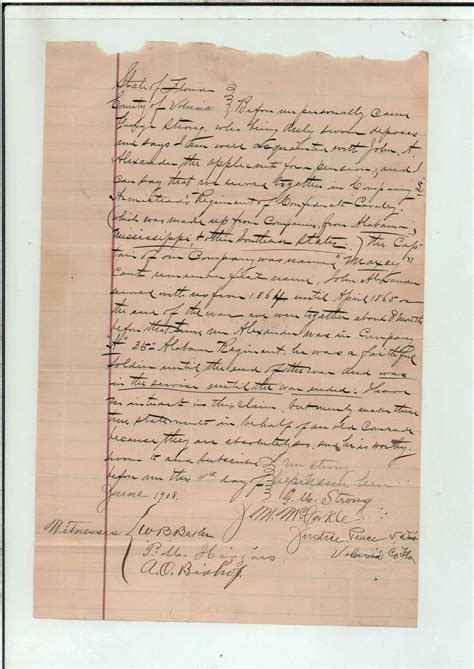 State of Florida
County of Volusia } Before me personally came
Strong, who being duly sworn deposes
and says I am well acquainted with John A.
Alexander, the applicant for pension, and I
can say that we served together in Company
Armistead's Regiment of Confederate Cavalry
(which was made up from Companies from Alabama,
Mississippi, & other Southern States.) The Cap-
tain of our Company was named "Maxey" I
cant remember first name, John Alexander
served with us from 1864 until April 1865 or
the end of the war we were together about 8 months
before that time Mr Alexander was in Company
"A" 38th Alabama Regiment, he was a faithful
soldier until the end of the war and was
in the service until the war ended. I have
no interest in this claim, but merely make these
true statements in behalf of an old Comrade
because they are absolutely so, and he is worthy.
Sworn to and subscribed
before me this day of
June 1908.
G. W. Strong
J. M. McCorkle
Justice Peace
Volusia Co Fla
Witnesses W B Barber
P. M. Higgins
A. O. Bishop